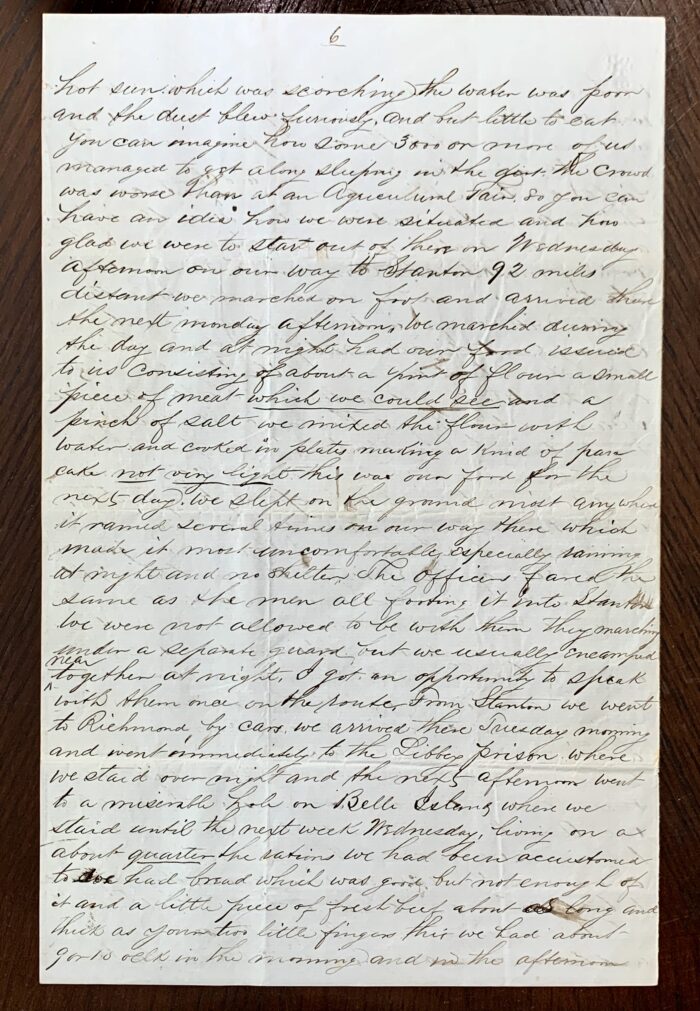 6
hot sun which was scorching the water was poor
and the dust blew furiously, and but little to eat
you can imagine how some 3000 or more of us
managed to get along sleeping in the dirt. the crowd
was worse than at an Agricultural Fair, so you can
have an idea how we were situated and how
glad we were to start out of there on Wednesday
afternoon on our way to Stanton 92 miles
distant we marched on foot and arrived there
the next monday afternoon, we marched during
the day and at night had our food issued
to us consisting of about a pint of flour a small
piece of meat which we could see and a
pinch of salt we mixed the flour with
water and cooked in plates making a kind of pan
cake not very light this was our food for the
next day. we slept on the ground most anywhere
it rained several times on our way there which
made it most uncomfortable, especially raining
at night and no shelter, The officers fared the
same as the men all footing it into Stanton
we were not allowed to be with them they marching
under a separate guard but we usually encamped
near
together at night, I got an opportunity to speak
with them once on the route, From Stanton we went
to Richmond by cars, we arrived there Tuesday morning
and went immediately to the Libbey prison where
we staid over night and the next afternoon went
to a miserable hole on Belle Island, where we
staid until the next week Wednesday, living on a
about quarter the rations we had been accustomed
to we had bread which was good but not enough of
it and a little piece of fresh beef about as long and
thick as your two little fingers this we had about
9 or 10 oclk in the morning and in the afternoon